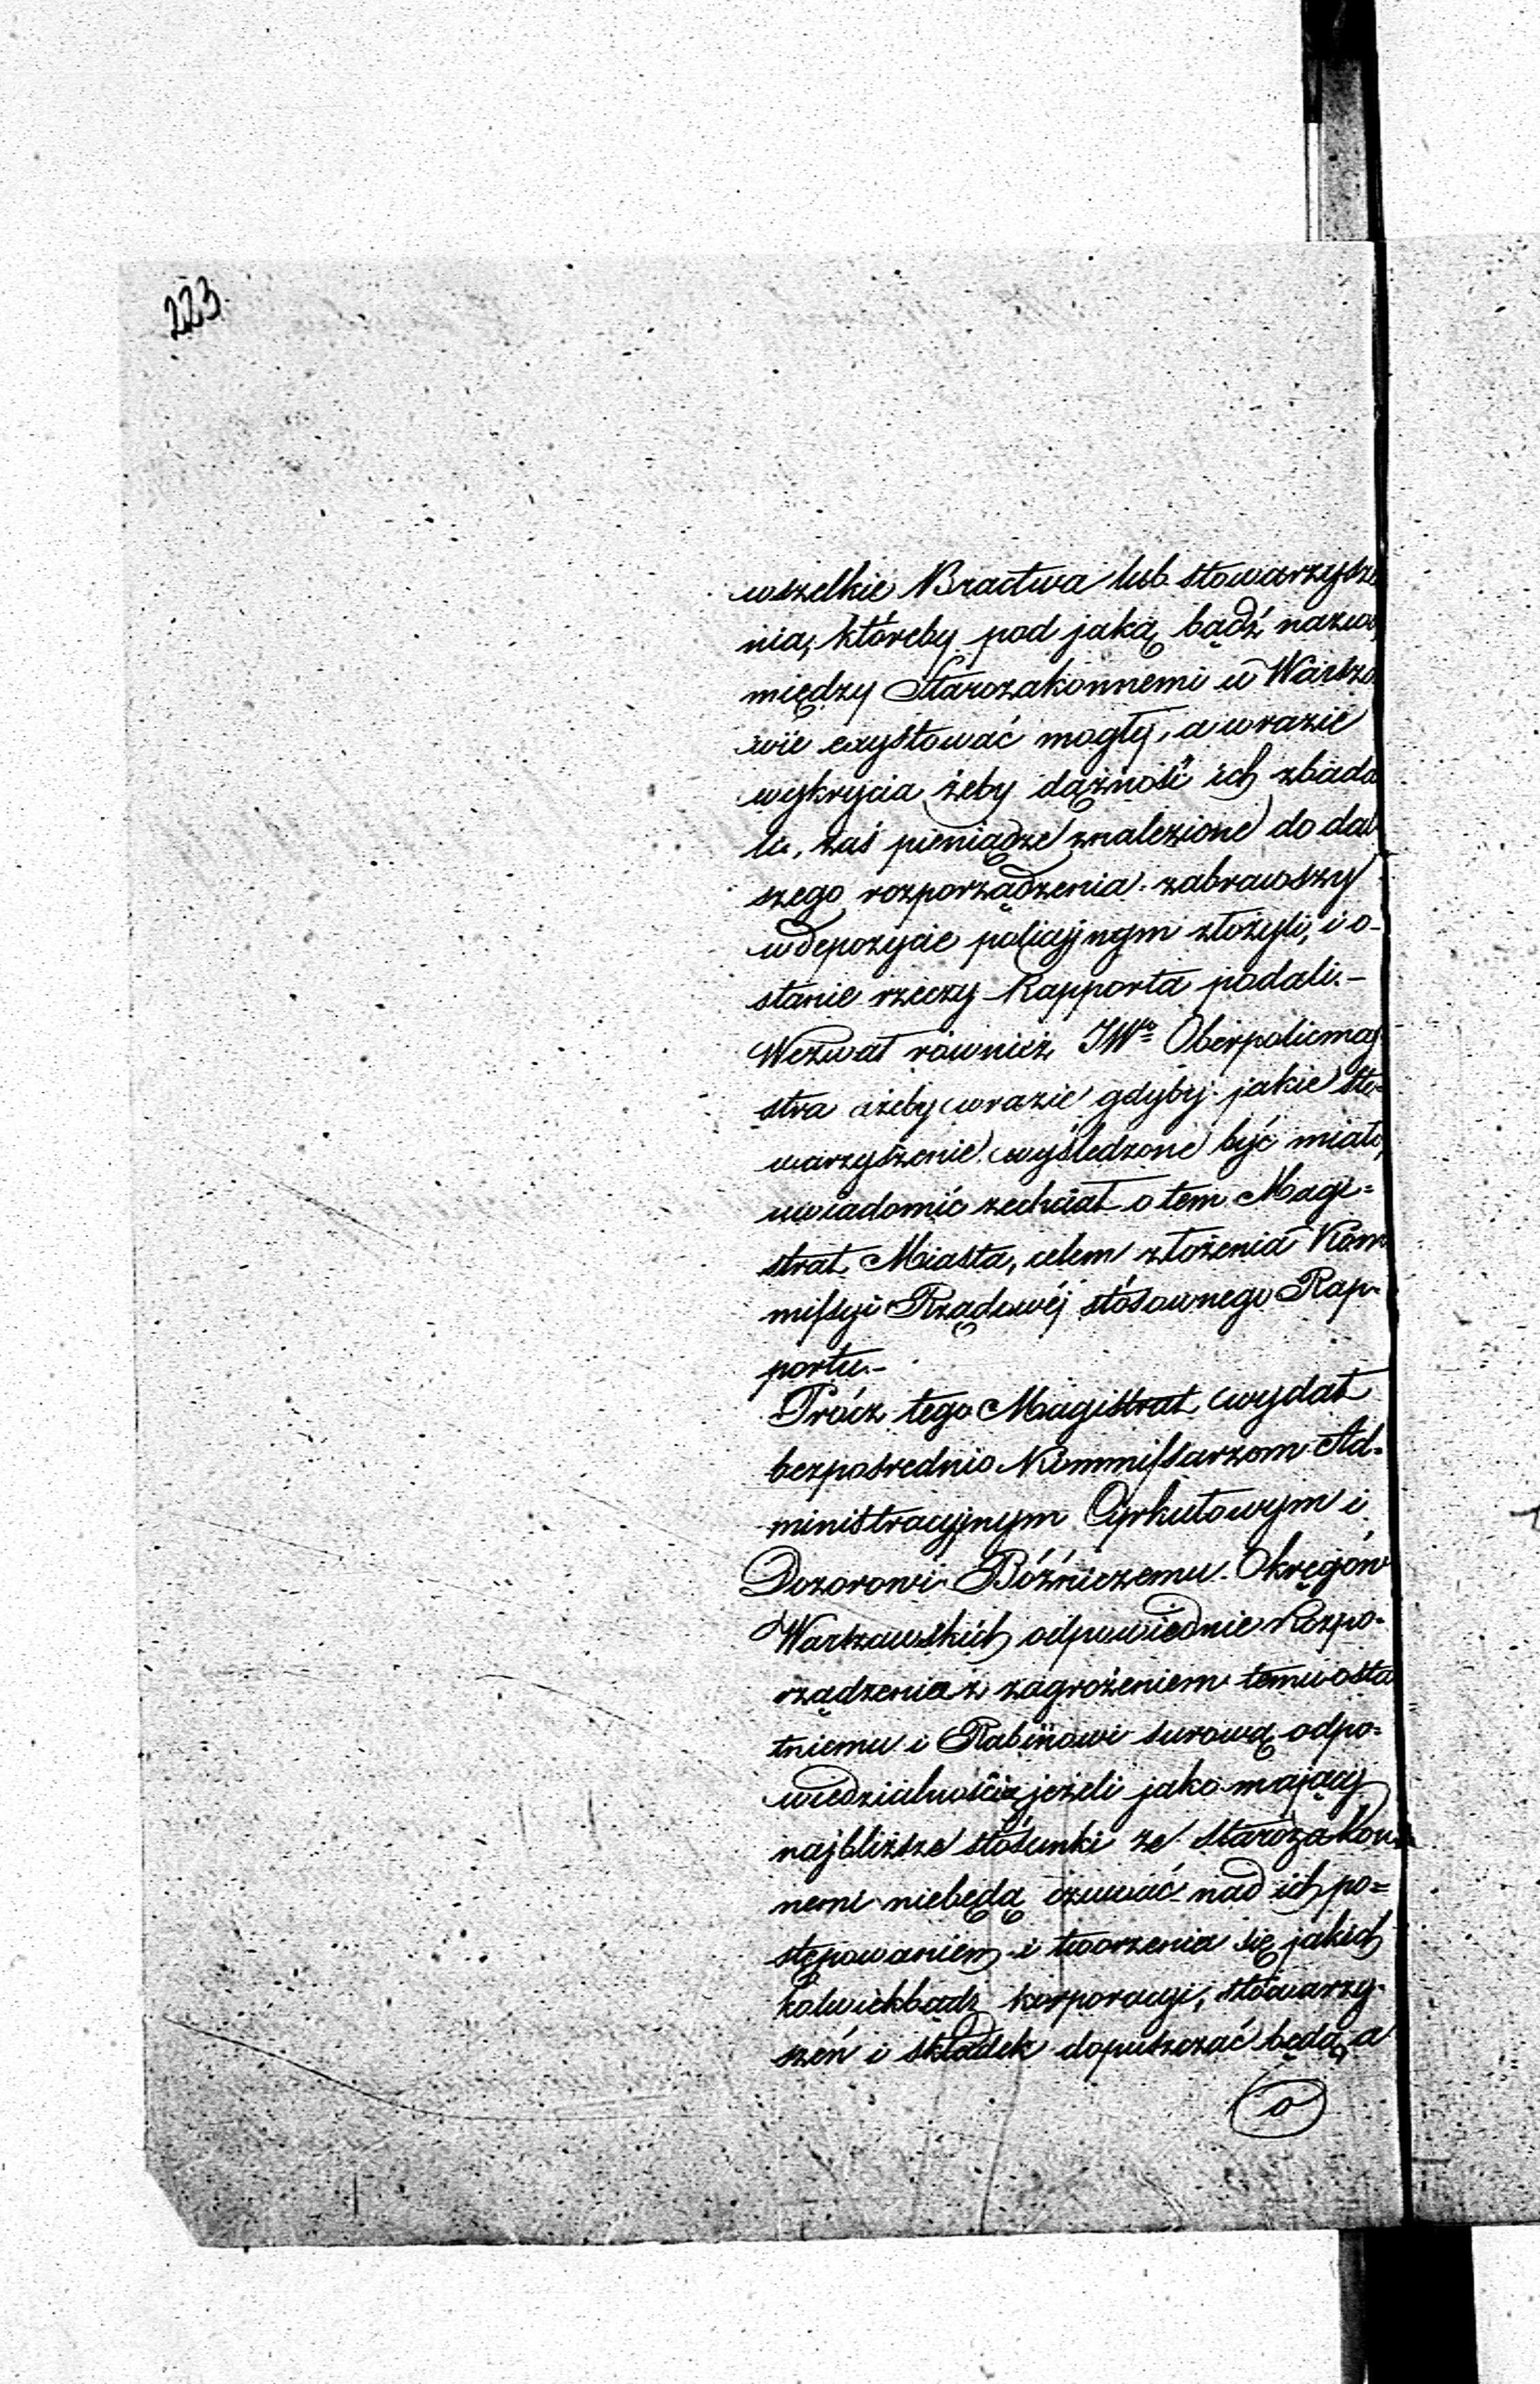 223.
wszelkie Bractwa lub stowarzysze
nia, któreby pod jaką bądź nazwą
między Starozakonnemi w Warsza
wie exystować mogły, a w razie
wykrycia żeby dążność ich zbada
li, zaś pieniądze znalezione do dal
szego rozporządzenia zabrawszy
w depozycie policyjnym złożyli, i o-
stanie rzeczy Rapporta podali.-
Wezwał również JWo Oberpolicmaj
stra ażeby w razie gdyby jakie sto=
warzyszenie wyśledzone być miało,
uwiadomić zechciał o tem Magi=
strat Miasta, celem złożenia Kom
missyi Rządowéj stósownego Rap-
portu.-
Prócz tego Magistrat wydał
bezpośrednio Kommissarzom Ad=
ministracyjnym Cyrkułowym i
Dozorowi Bóźniczemu Okręgów
Warszawskich odpowiednie Rozpo-
rządzenia z zagrożeniem temu osta
tniemu i Rabinowi surową odpo=
wiedzialnością jeżeli jako mający
najbliższe stósunki ze Starozakon
nemi niebędą czuwać nad ich po=
stępowaniem i tworzenia się jakich
kolwiekbądź korporacyi, stówarzy-
szeń i składek dopuszczać będą, a